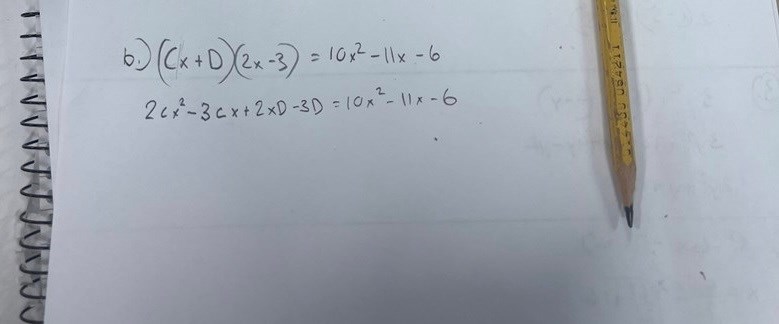 b.) (Cx + D)(2x - 3) = 10x² - 11x - 6
2cx² - 3cx + 2xD - 3D = 10x² - 11x - 6